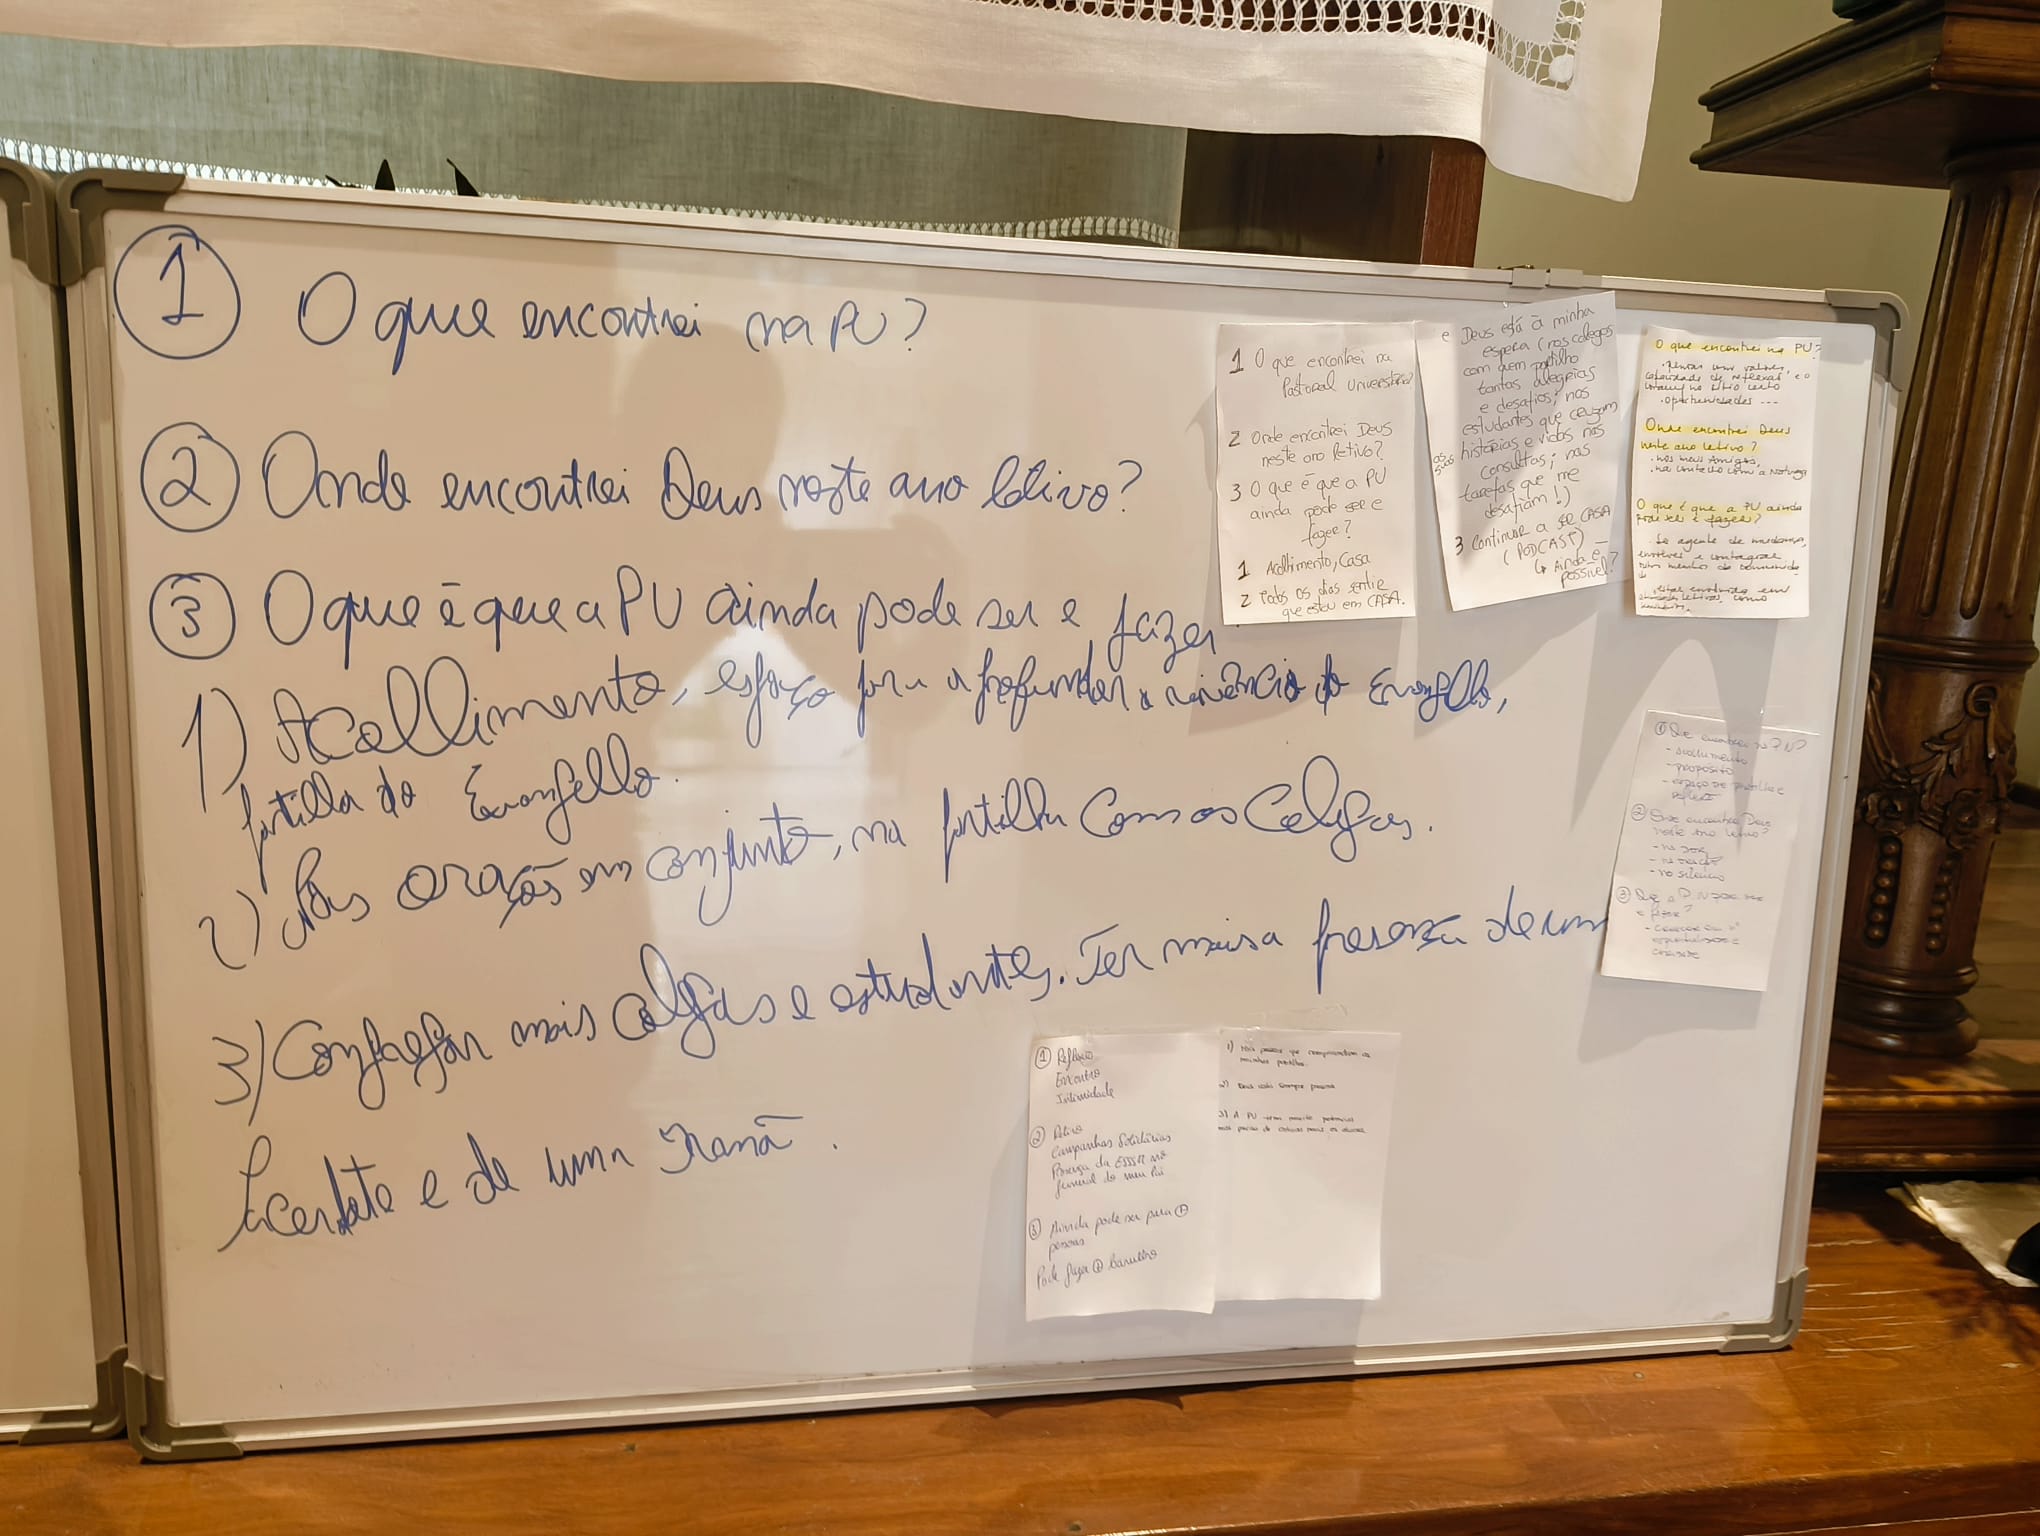 1 O que encontrei na PU?
2 Onde encontrei Deus neste ano letivo?
3 O que é que a PU ainda pode ser e fazer
1) Acolhimento, esforço para aprofundar a vivência do Evangelho,
partilha do Evangelho.
2) Nas orações em conjunto, na partilha com os colegas.
3) Congregar mais colegas e estudantes. Ter mais a presença de um
sacerdote e de uma Irmã.
1 O que encontrei na
Pastoral Universitária?
2 Onde encontrei Deus
neste ano letivo?
3 O que é que a PU
ainda pode ser e
fazer?
1 Acolhimento, Casa
2 Todos os dias sentir
que estou em CASA.
e Deus está à minha
espera (nos colegas
com quem partilho
tantas alegrias
e desafios; nos
estudantes que cruzam
as suas histórias e vidas nas
consultas; nas
tarefas que me
desafiam!)
3 Continuar a ser CASA
(PODCAST)
↳ Ainda é
possível?
O que encontrei na PU?
capacidade de reflexão e o
no sítio certo
. oportunidades ---
Onde encontrei Deus
neste ano letivo?
. nos meus amigos,
. no contacto com a Natureza
O que é que a PU ainda
pode ser e fazer?
. Ser agente de mudança,
envolver e contagiar
outros membros da comunidade
1 Que encontrei na PU?
- acolhimento
- propósito
- espaço de partilha e
reflexão
2 Onde encontrei Deus
neste ano letivo?
- na oração
- no silêncio
3 Que a PU pode ser
e fazer?
- crescer em nº
1 Reflexão
Encontro
Intimidade
2 Retiro
Campanhas Solidárias
Presença da ESSSM no
funeral do meu Pai
3 Ainda pode ser para +
pessoas
Pode fazer + barulho
1) Nas pessoas que compreendem as
minhas partilhas.
2) Deus está sempre presente
3) A PU tem muito potencial
mas precisa de cativar mais os alunos.